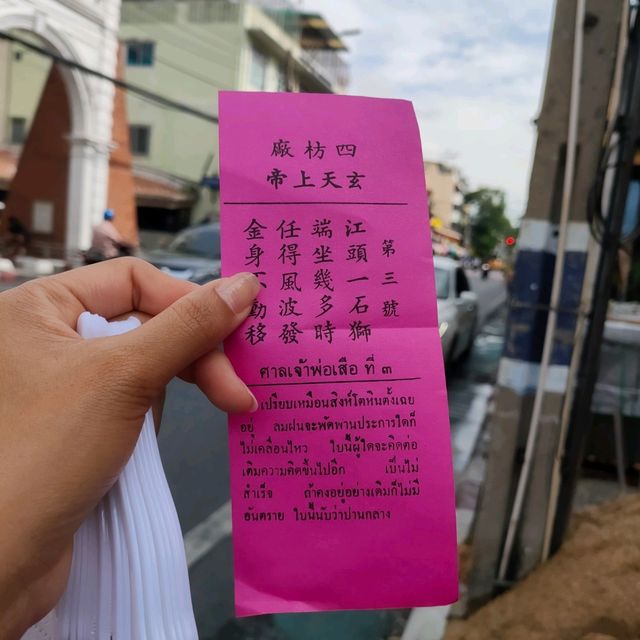 四枋廠
玄天上帝
第三號
江頭一石獅
端坐幾多時
任得風波發
金身不動移
ศาลเจ้าพ่อเสือ ที่ ๓
เปรียบเหมือนสิงห์โตหินตั้งเฉย
อยู่ ลมฝนจะพัดพานประการใดก็
ไม่เคลื่อนไหว ใบนี้ผู้ใดจะคิดต่อ
เติมความคิดขึ้นไปอีก เป็นไม่
สำเร็จ ถ้าคงอยู่อย่างเดิมก็ไม่มี
อันตราย ใบนี้นับว่าปานกลาง